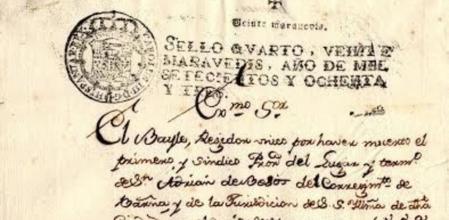 Veinte maravedis.
SELLO QVARTO, VEINTE
MARAVEDIS, AÑO DE MIL
SETECIENTOS Y OCHENTA
Y TRES.
Exmo Sor
El Bayle, Regidor unico por haver muerto el
primero, y Sindico Pror del Lugar y termo
de Sn Adrian de Besós del Corregimto de
Barna y de la Jurisdicion de S. Illma de dha